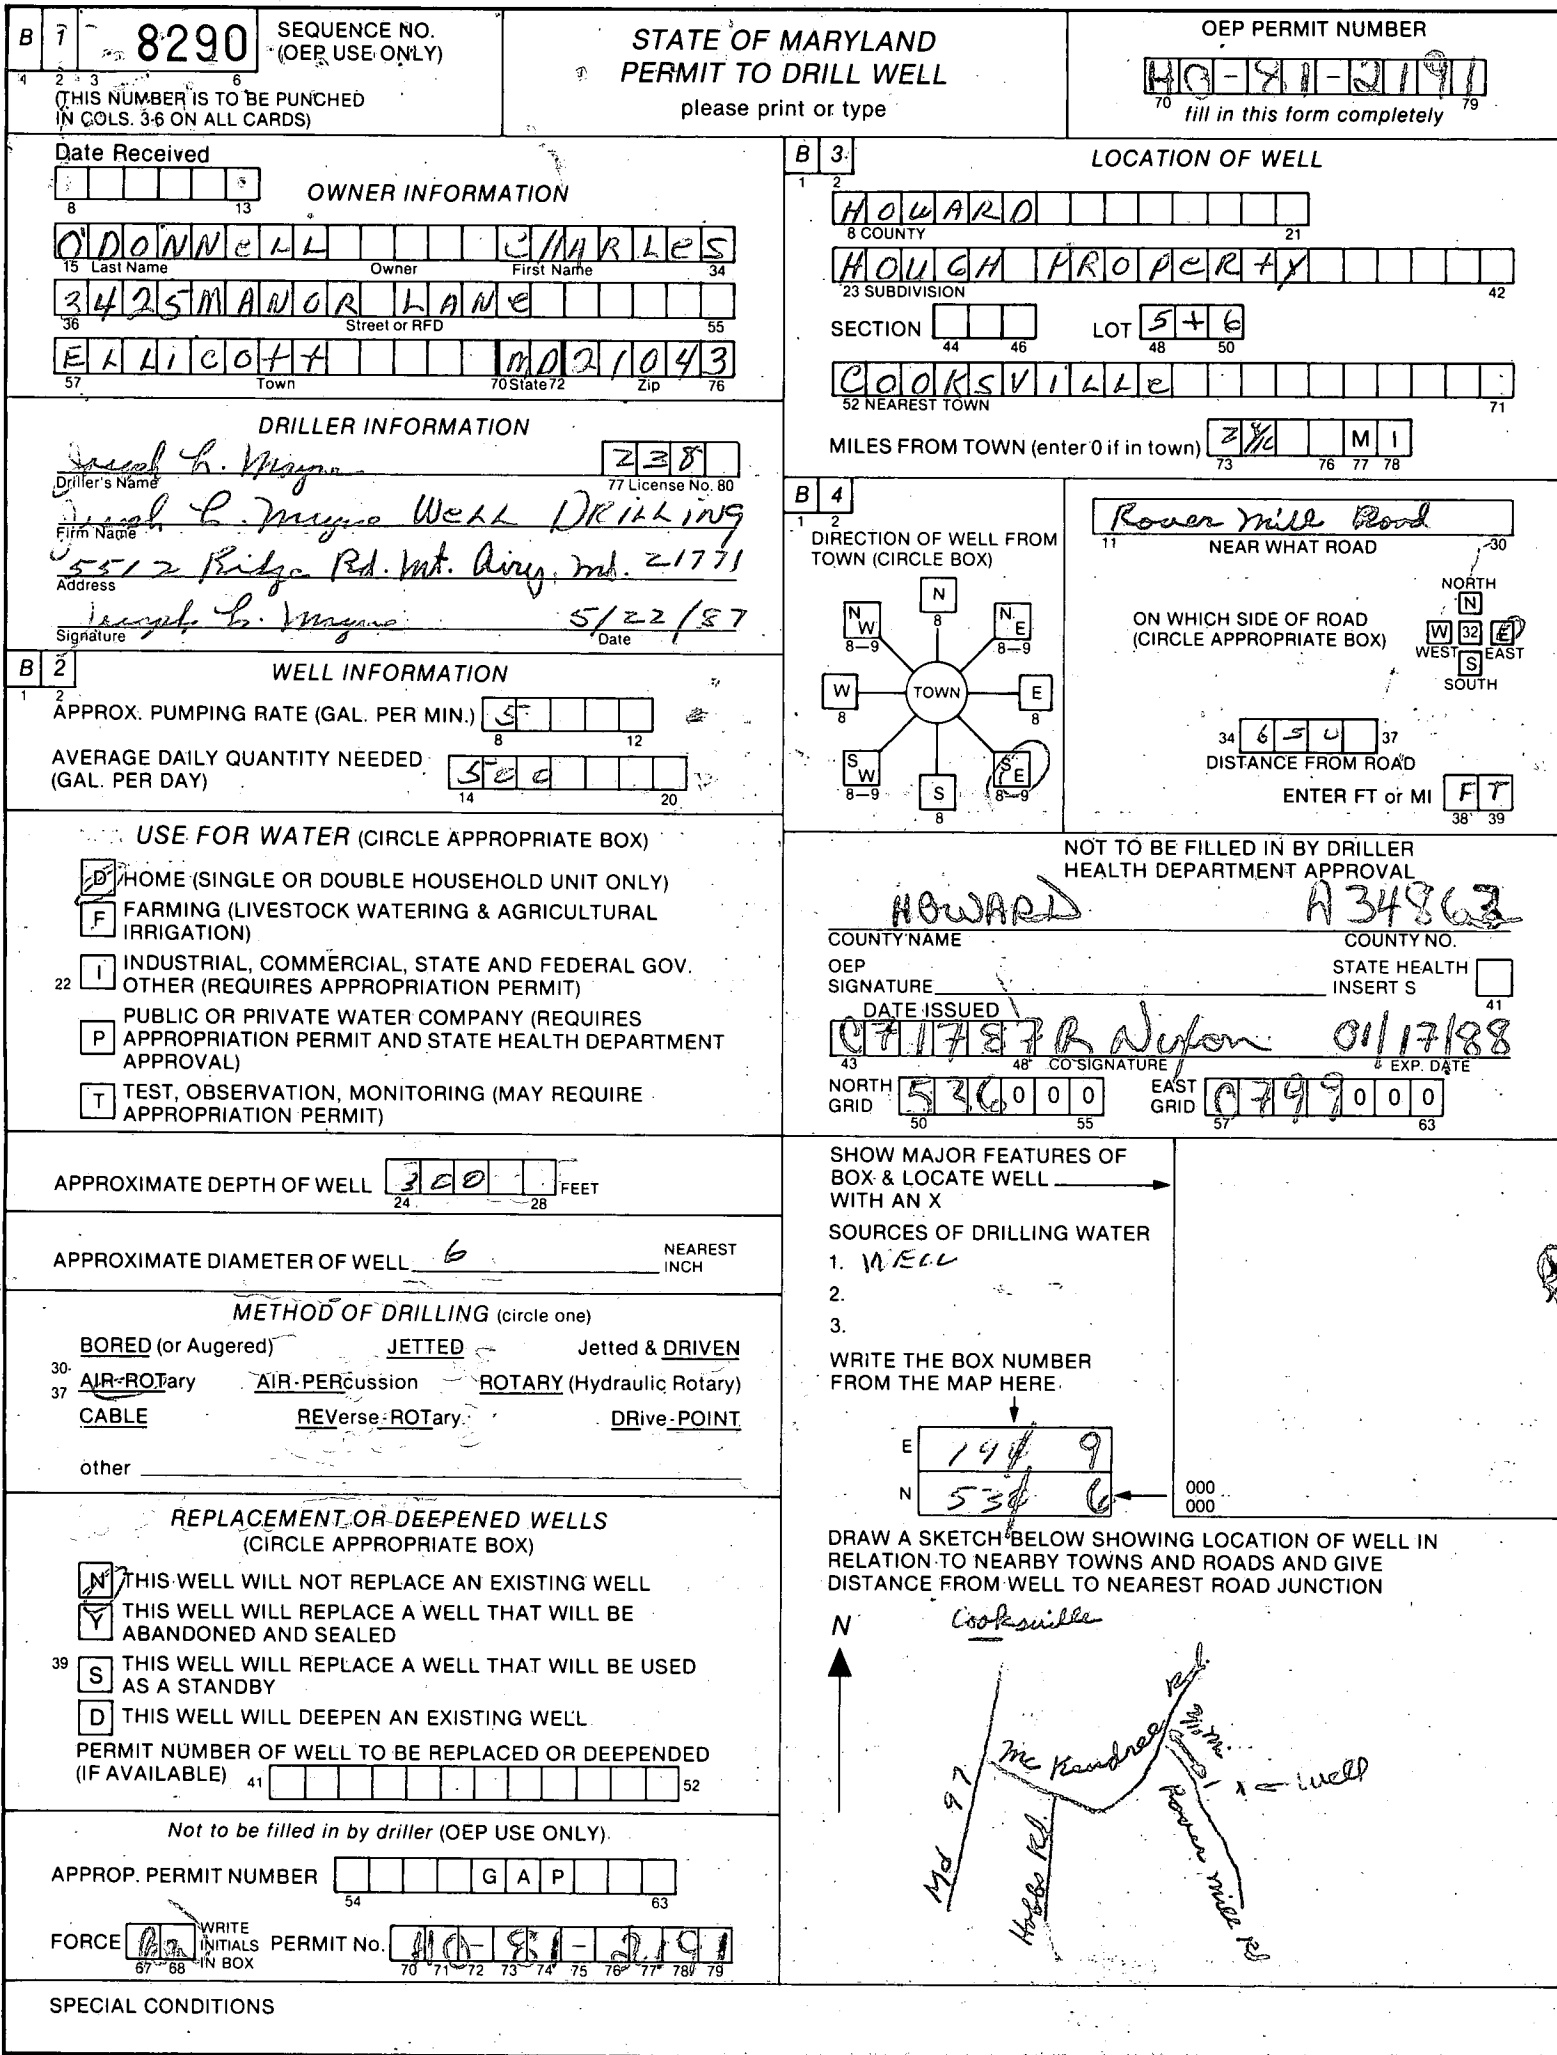 B 1 8290 SEQUENCE NO. (OEP USE ONLY)
1 2 3 6
(THIS NUMBER IS TO BE PUNCHED
IN COLS. 3-6 ON ALL CARDS)
STATE OF MARYLAND
PERMIT TO DRILL WELL
please print or type
OEP PERMIT NUMBER
HO-81-2191
70 79
fill in this form completely
Date Received
8 13
OWNER INFORMATION
O'DONNELL CHARLES
15 Last Name Owner First Name 34
3425 MANOR LANE
36 Street or RFD 55
ELLICOTT MD 21043
57 Town 70 State 72 Zip 76
DRILLER INFORMATION
Joseph L. Mayne 238
Driller's Name 77 License No. 80
Joseph L. Mayne WELL DRILLING
Firm Name
5512 Ridge Rd. Mt. Airy, Md. 21771
Address
Joseph L. Mayne 5/22/87
Signature Date
B 2 WELL INFORMATION
1 2
APPROX. PUMPING RATE (GAL. PER MIN.) 5
8 12
AVERAGE DAILY QUANTITY NEEDED
(GAL. PER DAY) 500
14 20
USE FOR WATER (CIRCLE APPROPRIATE BOX)
D HOME (SINGLE OR DOUBLE HOUSEHOLD UNIT ONLY)
F FARMING (LIVESTOCK WATERING & AGRICULTURAL
IRRIGATION)
22 I INDUSTRIAL, COMMERCIAL, STATE AND FEDERAL GOV.
OTHER (REQUIRES APPROPRIATION PERMIT)
P PUBLIC OR PRIVATE WATER COMPANY (REQUIRES
APPROPRIATION PERMIT AND STATE HEALTH DEPARTMENT
APPROVAL)
T TEST, OBSERVATION, MONITORING (MAY REQUIRE
APPROPRIATION PERMIT)
APPROXIMATE DEPTH OF WELL 300 FEET
24 28
APPROXIMATE DIAMETER OF WELL 6 NEAREST
INCH
METHOD OF DRILLING (circle one)
BORED (or Augered) JETTED Jetted & DRIVEN
30-37 AIR-ROTary AIR-PERcussion ROTARY (Hydraulic Rotary)
CABLE REVerse-ROTary DRive-POINT
other
REPLACEMENT OR DEEPENED WELLS
(CIRCLE APPROPRIATE BOX)
N THIS WELL WILL NOT REPLACE AN EXISTING WELL
Y THIS WELL WILL REPLACE A WELL THAT WILL BE
ABANDONED AND SEALED
39 S THIS WELL WILL REPLACE A WELL THAT WILL BE USED
AS A STANDBY
D THIS WELL WILL DEEPEN AN EXISTING WELL
PERMIT NUMBER OF WELL TO BE REPLACED OR DEEPENDED
(IF AVAILABLE) 41 52
Not to be filled in by driller (OEP USE ONLY)
APPROP. PERMIT NUMBER G A P
54 63
FORCE WRITE INITIALS IN BOX PERMIT No. HO-81-2191
67 68 70 71 72 73 74 75 76 77 78 79
SPECIAL CONDITIONS
B 3 LOCATION OF WELL
1 2
HOWARD
8 COUNTY 21
HOUGH PROPERTY
23 SUBDIVISION 42
SECTION LOT 5+6
44 46 48 50
COOKSVILLE
52 NEAREST TOWN 71
MILES FROM TOWN (enter 0 if in town) 2 M I
73 76 77 78
B 4
1 2
DIRECTION OF WELL FROM
TOWN (CIRCLE BOX)
N 8
NW 8-9 NE 8-9
W 8 TOWN E 8
SW 8-9 SE 8-9
S 8
Rover Mill Road
11 NEAR WHAT ROAD 30
ON WHICH SIDE OF ROAD
(CIRCLE APPROPRIATE BOX)
NORTH N
W 32 E
WEST EAST
S
SOUTH
34 650 37
DISTANCE FROM ROAD
ENTER FT or MI FT
38 39
NOT TO BE FILLED IN BY DRILLER
HEALTH DEPARTMENT APPROVAL
HOWARD A34863
COUNTY NAME COUNTY NO.
OEP
SIGNATURE STATE HEALTH
INSERT S
41
DATE ISSUED
071787 R 01/17/88
43 48 CO SIGNATURE EXP. DATE
NORTH GRID 536000 EAST GRID 0799000
50 55 57 63
SHOW MAJOR FEATURES OF
BOX & LOCATE WELL
WITH AN X
SOURCES OF DRILLING WATER
1. WELL
2.
3.
WRITE THE BOX NUMBER
FROM THE MAP HERE
E 9
N 6
000
000
DRAW A SKETCH BELOW SHOWING LOCATION OF WELL IN
RELATION TO NEARBY TOWNS AND ROADS AND GIVE
DISTANCE FROM WELL TO NEAREST ROAD JUNCTION
N
Cooksville
Md 97
McKendree Rd.
Hobbs Rd.
Rover Mill Rd
x ← Well